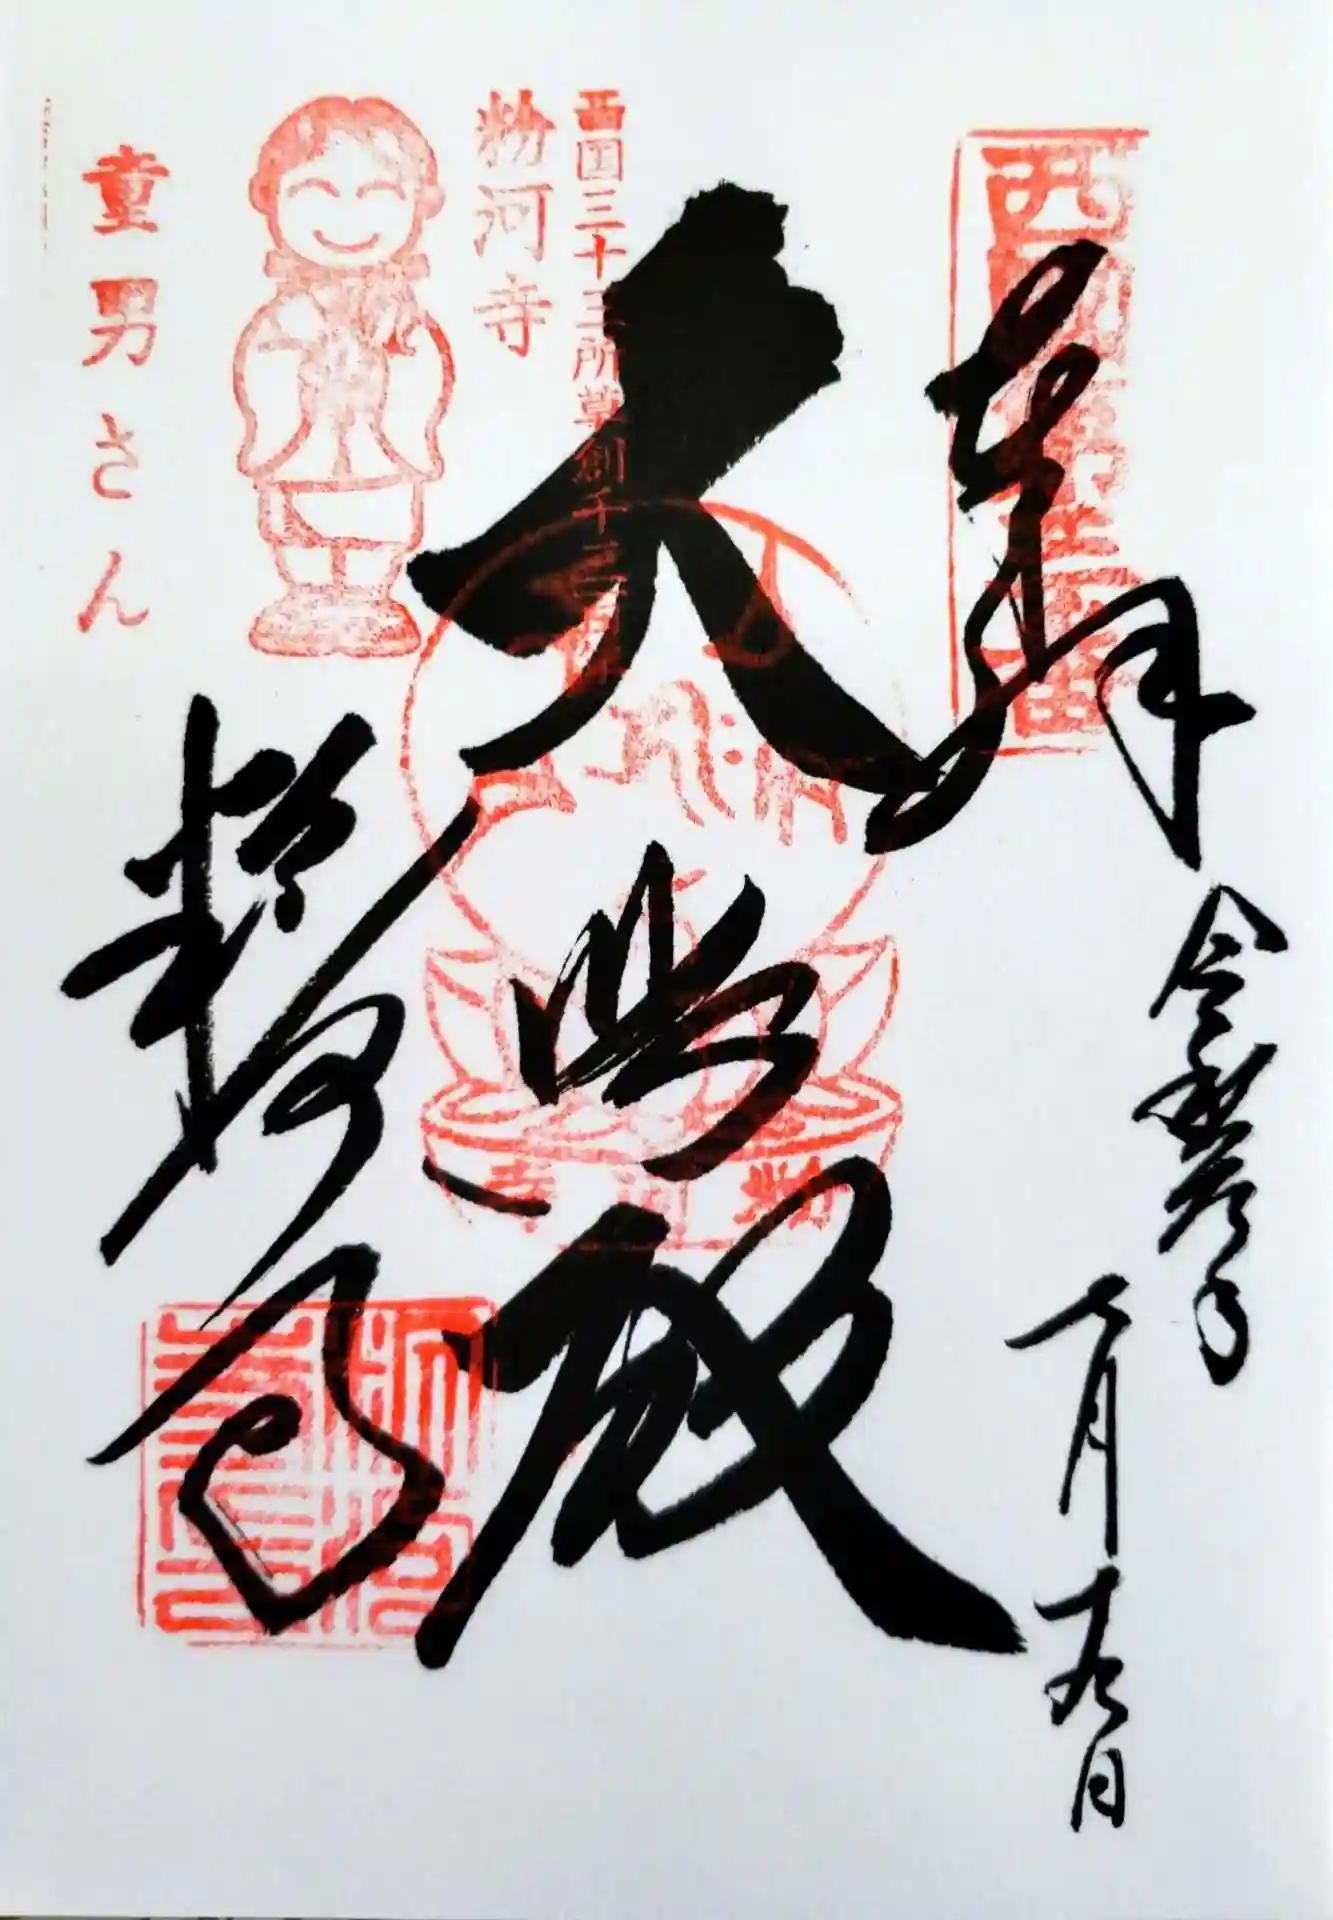 奉拝
令和参年
七月十九日
西国第三番
大悲殿
西国三十三所草創千三百年
粉河寺
粉河寺
粉河寺
童男さん